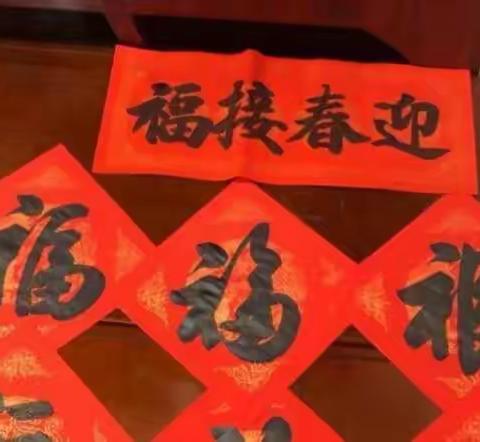 迎春接福
福
福
福